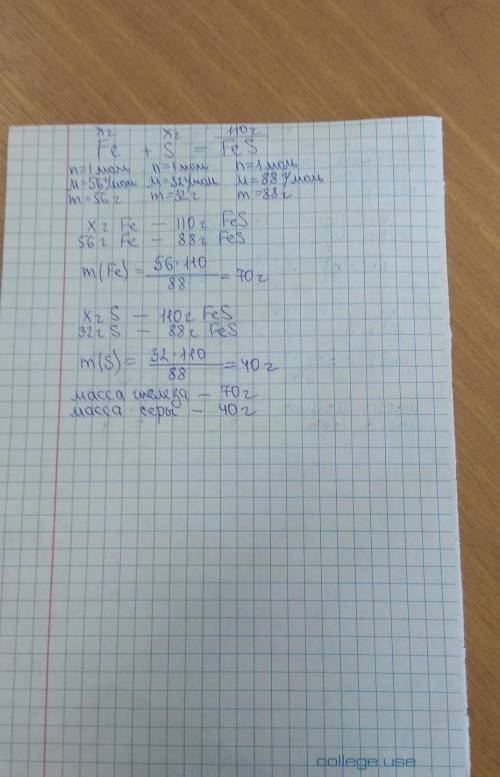 xг xг 110г
Fe + S = FeS
n=1моль n=1моль n=1моль
M=56г/моль M=32г/моль M=88г/моль
m=56г m=32г m=88г
xг Fe — 110г FeS
56г Fe — 88г FeS
m(Fe) = 56·110 / 88 = 70г
xг S — 110г FeS
32г S — 88г FeS
m(S) = 32·110 / 88 = 40г
масса железа — 70г
масса серы — 40г
college.use